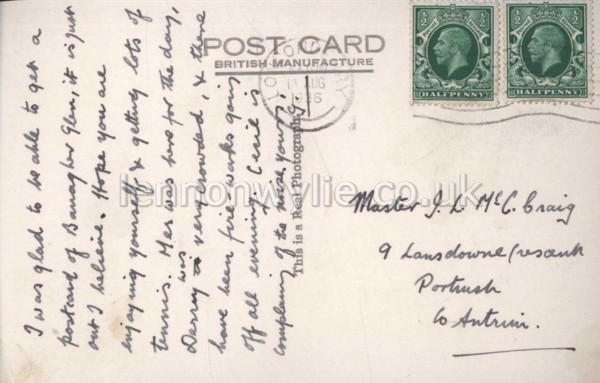 POST CARD
BRITISH MANUFACTURE
LONDONDERRY
11 AUG
1936
HALFPENNY
HALFPENNY
I was glad to be able to get a
postcard of Banagher Glen, it is just
out I believe. Hope you are
enjoying yourself & getting lots of
tennis. Mer was here for the day,
Derry was very crowded, & there
have been fire-works going
off all evening. Cecil is
complaining of the noise. yours, G.
This is a Real Photograph
Master J. L. McC. Craig
9 Lansdowne Crescent
Portrush
Co Antrim.
lennonwylie.co.uk